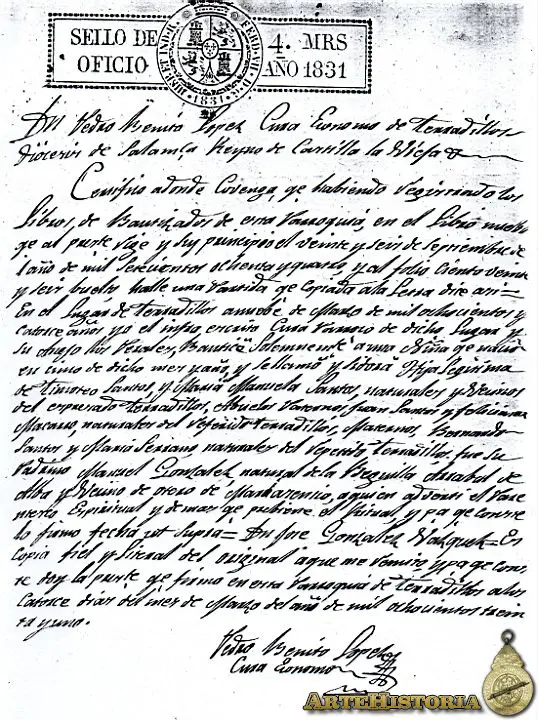 SELLO DE OFICIO
HISP. ET IND. R. FERD. VII. D. G. 1831
4. MRS AÑO 1831
Dn Pedro Benito Lopez Cura Economo de terradillos
Diocesis de Salamca Reyno de Castilla la Vieja
Certifico adonde Covenga, qe habiendo Registrado los
Libros, de Bautizados de esta Parroquia, en el Libro nuebo
qe al preste Rige y dio principio el veinte y seis de Septiembre de
l año de mil Setecientos ochenta y quatro, y al folio Ciento veinte
y seis buelto halle una Partida qe copiada ala Letra dice asi=
En el Lugar de terradillos a nuebe de Marzo de mil ochocientos y
Catorce años yo el infro escrito Cura Parroco de dicho Lugar y
su anejo los Perales, Bautice Solemnemte a una Niña qe nacio
en cinco de dicho mes y año, y se llamo Ysidora Hija Legitima
de timoteo Santos, y Maria Manuela Santos, naturales y Vecinos
del espresado terradillos, Abuelos Paternos, Juan Santos y feliciana
Macario, naturales del Referido terradillos, Maternos, Bernardo
Santos y Maria Serrano, naturales del Repetido terradillos, fue su
Padrino Manuel Gonzalez, natural de la Bequilla arrabal de
Alba y Vecino de otero de Maria asensio, aquien adverti el Paren
tesco Espiritual y demas qe pribiene el Ritual y pa qe conste
lo firmo fecha ut Supra= Dn Jose Gonzalez Vazquez= Es
Copia fiel y literal del original a que me Remito y pa qe cons
te doy la preste qe firmo en esta Parroquia de terradillos a los
Catorce dias del mes de Marzo del año de mil ochocientos trein
ta y uno.
Pedro Benito Lopez
Cura Economo
ARTEHISTORIA